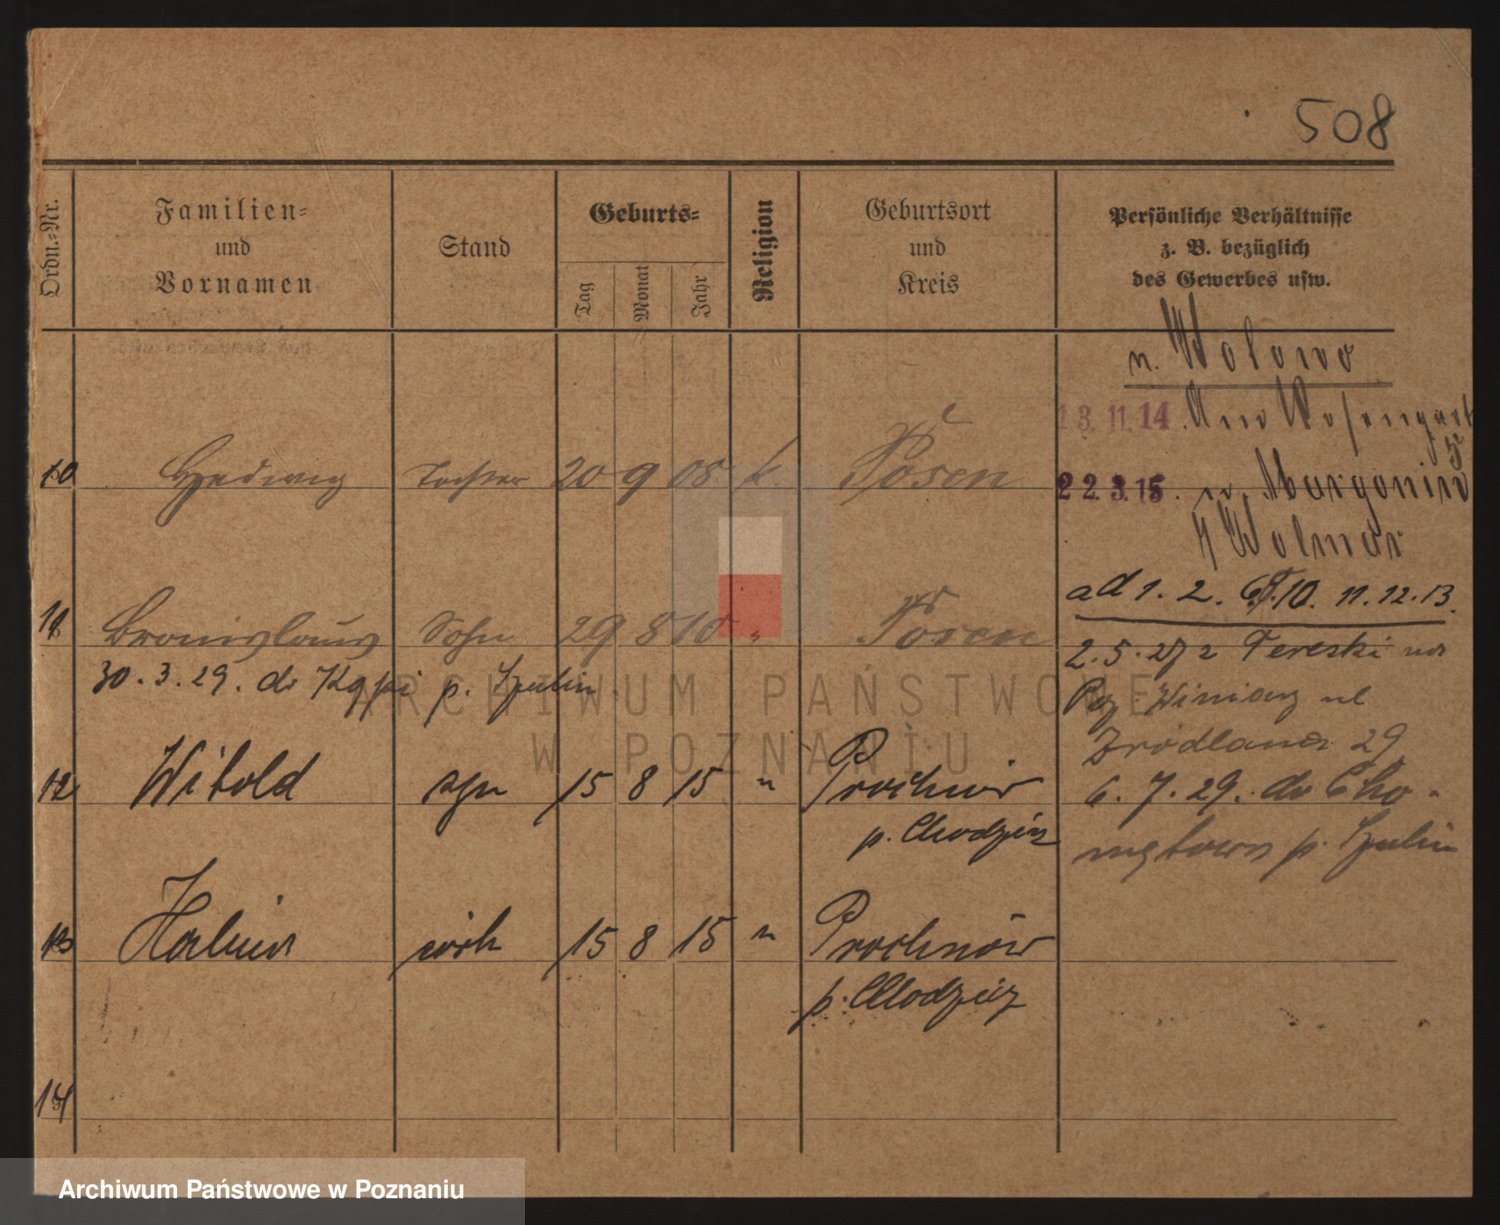 508
Ordn.-Nr.
Familien-
und
Vornamen
Stand
Geburts-
Tag
Monat
Jahr
Religion
Geburtsort
und
Kreis
Persönliche Verhältnisse
z. B. bezüglich
des Gewerbes usw.
n. Wolowo
13.11.14. Am Rosengart
5
10 Hedwig Tochter 20 9 08 k. Posen
22.3.15. n. Margonin
Wolmar
ad 1. 2. 10. 11. 12. 13.
11 Bronislaus Sohn 29 8 10 " Posen
2.5.27 z Tereski
30.3.29. do p. Żnin
Winiary ul
Źródlana 29
12 Witold syn 15 8 15 " Prochnów
p. Chodzież
6.7.29. do Cho-
mętowo p. Żnin
13 Halina córk 15 8 15 " Prochnów
p. Chodzież
14
ARCHIWUM PAŃSTWOWE
W POZNANIU
Archiwum Państwowe w Poznaniu